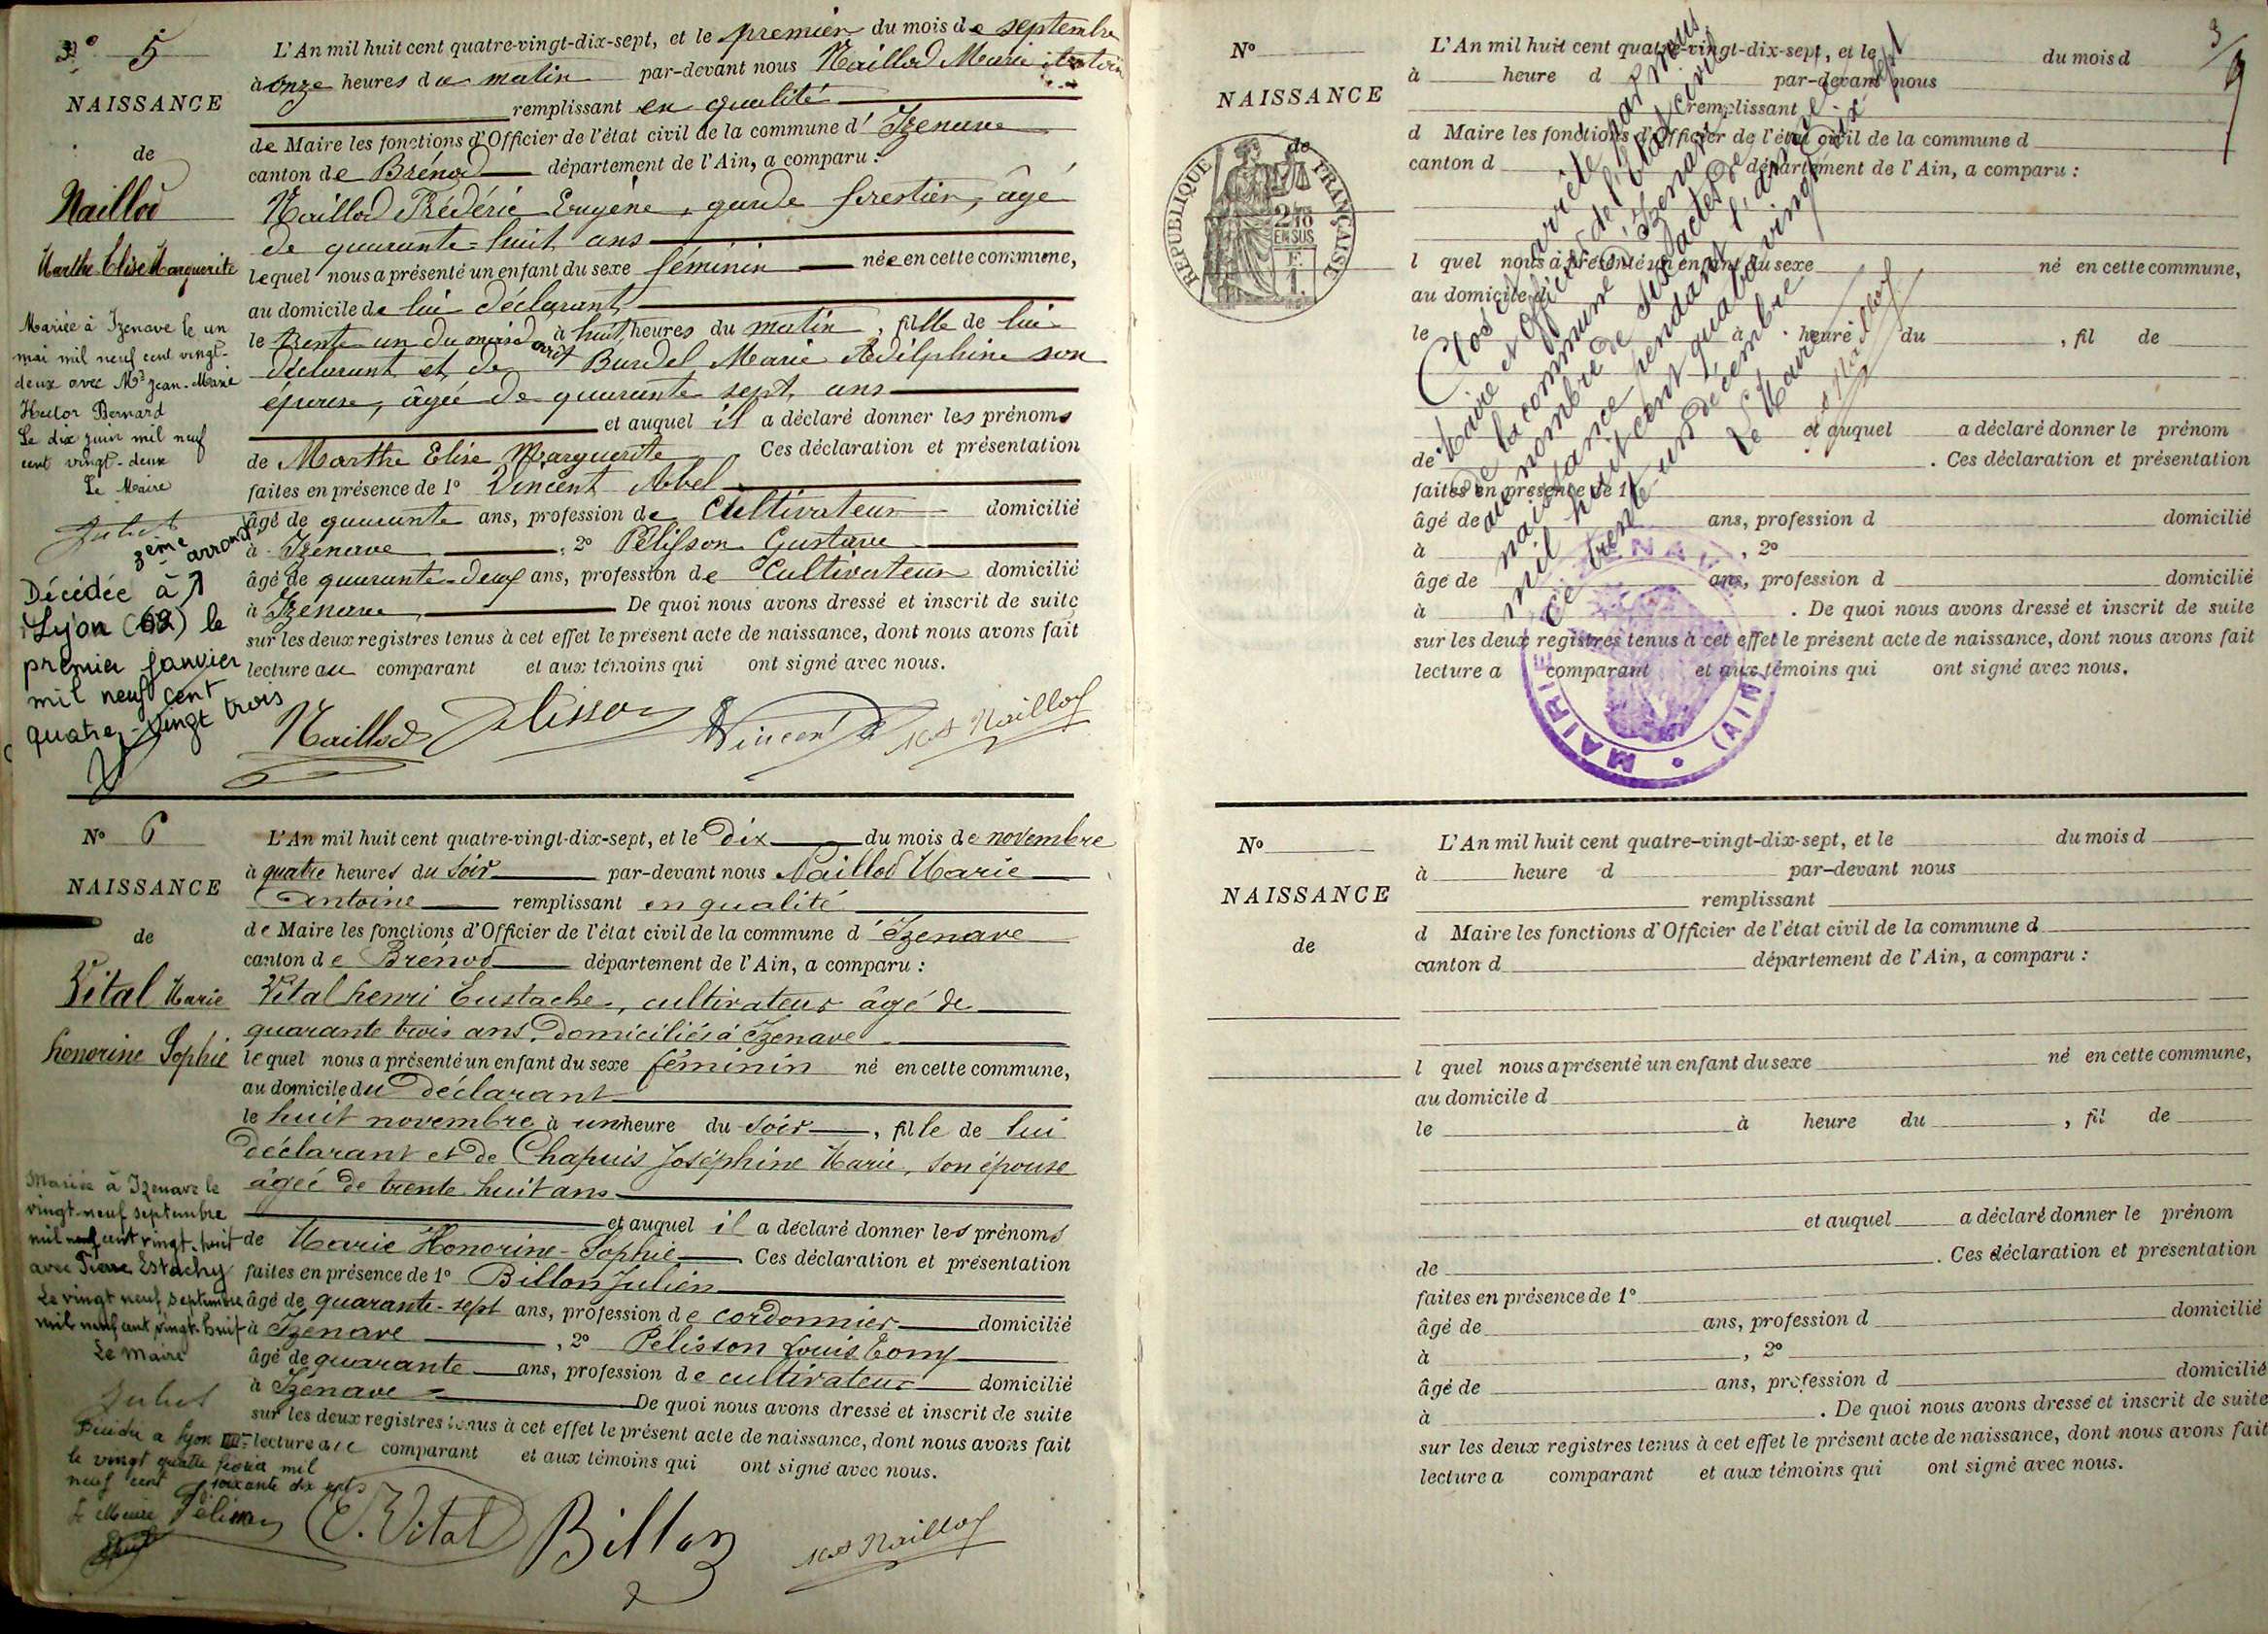 N° 5
NAISSANCE
de
Naillod
Marthe Elise Marguerite
Mariée à Izenave le un
mai mil neuf cent vingt-
deux avec Mr Jean-Marie
Hector Bernard
Le dix juin mil neuf
cent vingt-deux
Le Maire
Décédée à
3ème arrondt
Lyon le
premier janvier
mil neuf cent
quatre-vingt trois
L'An mil huit cent quatre-vingt-dix-sept, et le premier du mois de septembre
à onze heures du matin par-devant nous Naillod Marie Antoine
remplissant en qualité
de Maire les fonctions d'Officier de l'état civil de la commune d'Izenave
canton de Brénod département de l'Ain, a comparu :
Naillod Frédéric Eugène, garde forestier, âgé
de quarante-huit ans
lequel nous a présenté un enfant du sexe féminin née en cette commune,
au domicile de lui déclarant
le trente un du mois d'août à huit heures du matin, fille de lui
déclarant et de Burdel Marie Adelphine son
épouse, âgée de quarante sept ans
et auquel il a déclaré donner les prénoms
de Marthe Elise Marguerite Ces déclaration et présentation
faites en présence de 1° Vincent Abel
âgé de quarante ans, profession de Cultivateur domicilié
à Izenave, 2° Pélisson Gustave
âgé de quarante-deux ans, profession de Cultivateur domicilié
à Izenave De quoi nous avons dressé et inscrit de suite
sur les deux registres tenus à cet effet le présent acte de naissance, dont nous avons fait
lecture au comparant et aux témoins qui ont signé avec nous.
Naillod Pélisson Vincent A Naillod
N° 6
NAISSANCE
de
Vital Marie
honorine Sophie
Mariée à Izenave le
vingt neuf septembre
mil neuf cent vingt-huit
avec Pierre Estachy
Le vingt neuf septembre
mil neuf cent vingt-huit
Le Maire
Décédée à Lyon
le vingt quatre février mil
neuf cent soixante dix sept
Le Maire
L'An mil huit cent quatre-vingt-dix-sept, et le Dix du mois de novembre
à quatre heures du soir par-devant nous Naillod Marie
Antoine remplissant en qualité
de Maire les fonctions d'Officier de l'état civil de la commune d'Izenave
canton de Brénod département de l'Ain, a comparu :
Vital henri Eustache, cultivateur âgé de
quarante trois ans, domiciliés à Izenave
lequel nous a présenté un enfant du sexe féminin né en cette commune,
au domicile du Déclarant
le huit novembre à une heure du soir, fille de lui
déclarant et de Chapuis Joséphine Marie, son épouse
âgée de trente huit ans
et auquel il a déclaré donner les prénoms
de Marie Honorine-Sophie Ces déclaration et présentation
faites en présence de 1° Billon Julien
âgé de quarante-sept ans, profession de cordonnier domicilié
à Izenave, 2° Pélisson Louis Tony
âgé de quarante ans, profession de cultivateur domicilié
à Izenave De quoi nous avons dressé et inscrit de suite
sur les deux registres tenus à cet effet le présent acte de naissance, dont nous avons fait
lecture au comparant et aux témoins qui ont signé avec nous.
Pélisson E. Vital Billon Naillod
N°
NAISSANCE
de
REPUBLIQUE FRANÇAISE
EN SUS
L'An mil huit cent quatre-vingt-dix-sept, et le du mois d
à heure d par-devant nous
remplissant
d Maire les fonctions d'Officier de l'état civil de la commune d
canton d département de l'Ain, a comparu :
l quel nous a présenté un enfant du sexe né en cette commune,
au domicile d
le à heure du , fil de
et auquel a déclaré donner le prénom
de . Ces déclaration et présentation
faites en présence de 1°
âgé de ans, profession d domicilié
à , 2°
âgé de ans, profession d domicilié
à . De quoi nous avons dressé et inscrit de suite
sur les deux registres tenus à cet effet le présent acte de naissance, dont nous avons fait
lecture a comparant et aux témoins qui ont signé avec nous.
Clos et arrêté par nous
Maire et Officier de l'état civil
de la commune d'Izenave
au nombre de six actes de
naissance pendant l'année
mil huit cent quatre vingt dix sept
Ce trente-un décembre
Le Maire
MAIRIE D'IZENAVE (AIN)
N°
NAISSANCE
de
L'An mil huit cent quatre-vingt-dix-sept, et le du mois d
à heure d par-devant nous
remplissant
d Maire les fonctions d'Officier de l'état civil de la commune d
canton d département de l'Ain, a comparu :
l quel nous a présenté un enfant du sexe né en cette commune,
au domicile d
le à heure du , fil de
et auquel a déclaré donner le prénom
de . Ces déclaration et présentation
faites en présence de 1°
âgé de ans, profession d domicilié
à , 2°
âgé de ans, profession d domicilié
à . De quoi nous avons dressé et inscrit de suite
sur les deux registres tenus à cet effet le présent acte de naissance, dont nous avons fait
lecture a comparant et aux témoins qui ont signé avec nous.